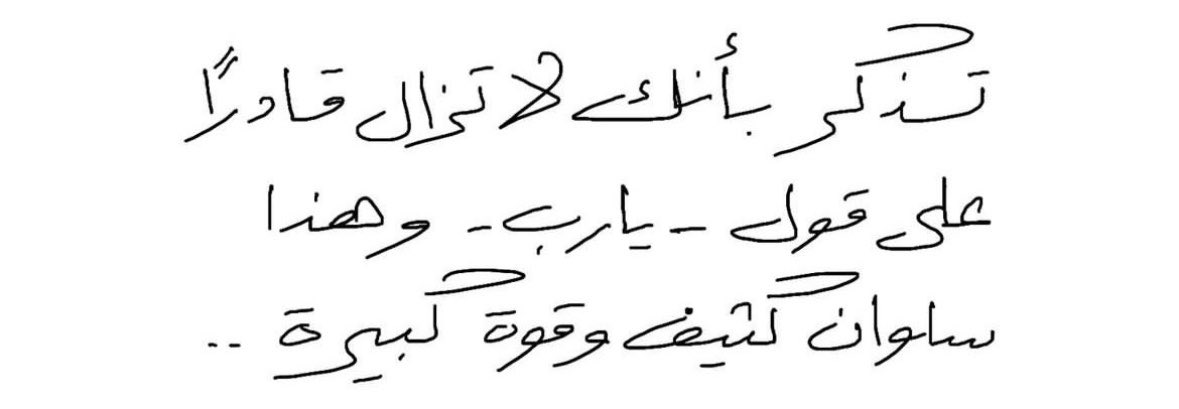 تذكر بأنك لا تزال قادرًا
على قول - يارب - وهذا
سلوان كثيف وقوة كبيرة ..